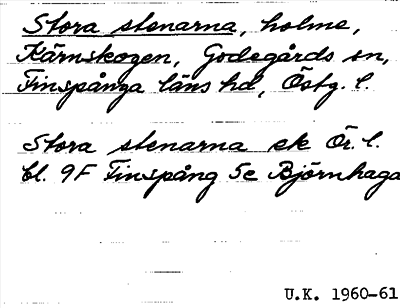 Stora stenarna, holme,
Kärnskogen, Godegårds sn,
Finspånga läns hd, Östg. l.
Stora stenarna ek Ör. l.
bl. 9F Finspång 5e Björnhaga
U.K. 1960-61